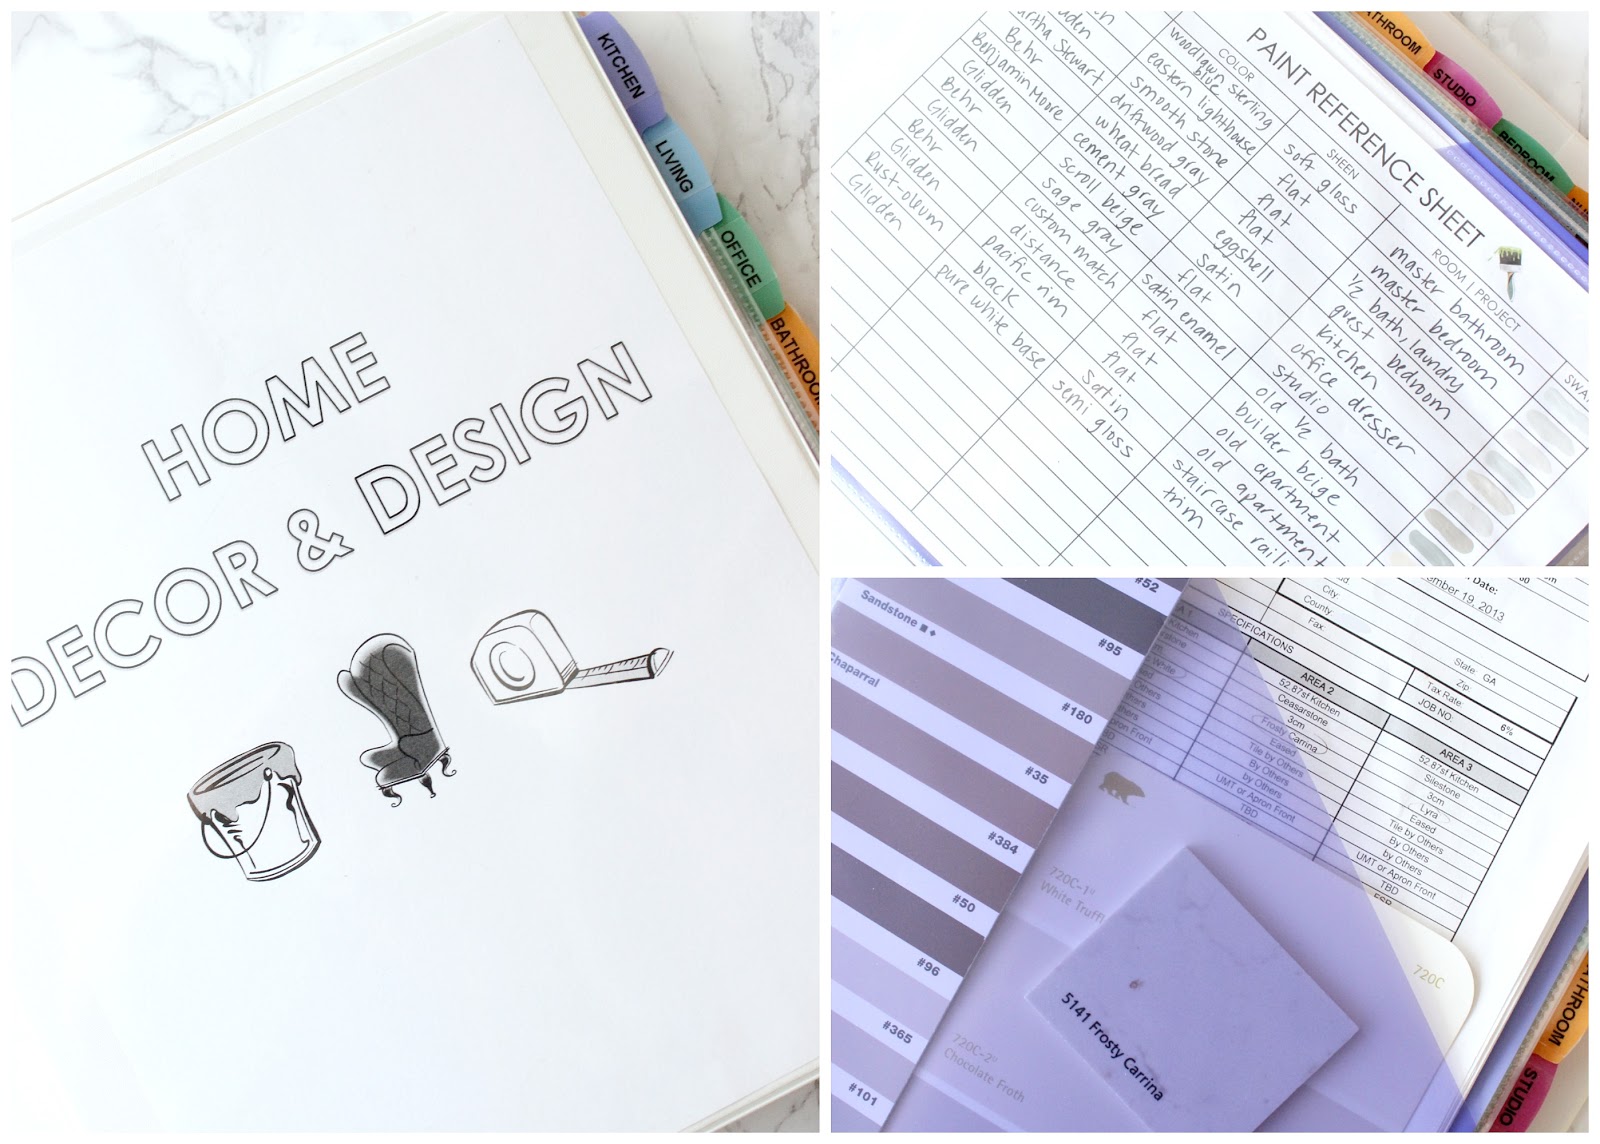 HOME
DECOR & DESIGN
KITCHEN
LIVING
OFFICE
BATHROOM
PAINT REFERENCE SHEET
COLOR SHEEN ROOM | PROJECT SWA
woodlawn sterling blue soft gloss master bathroom
eastern lighthouse flat master bedroom
smooth stone flat 1/2 bath, laundry
artha Stewart driftwood gray flat guest bedroom
Behr wheat bread eggshell kitchen
Benjamin Moore cement gray satin office dresser
Glidden scroll beige flat studio
Behr sage gray satin enamel old 1/2 bath
Glidden custom match flat builder beige
Behr distance flat old apartment
Glidden pacific rim flat old apartment
Rust-oleum black satin staircase raili
Glidden pure white base semi gloss trim
ATHROOM
STUDIO
BEDROOM
#52
Sandstone
#95
Chaparral
#180
#35
#384
#50
#96
#365
#101
Date:
ember 19, 2013
City:
County:
Fax:
State: GA
Zip:
Tax Rate: 6%
JOB NO:
SPECIFICATIONS
AREA 2
52.87sf Kitchen
Ceasarstone
3cm
Frosty Carrina
Eased
Tile by Others
By Others
by Others
UMT or Apron Front
TBD
AREA 3
52.87sf Kitchen
Silestone
3cm
Lyra
Eased
Tile by Others
By Others
by Others
UMT or Apron Front
TBD
720C-1
White Truffl
720C-2
Chocolate Froth
720C
5141 Frosty Carrina
ATHROOM
STUDIO